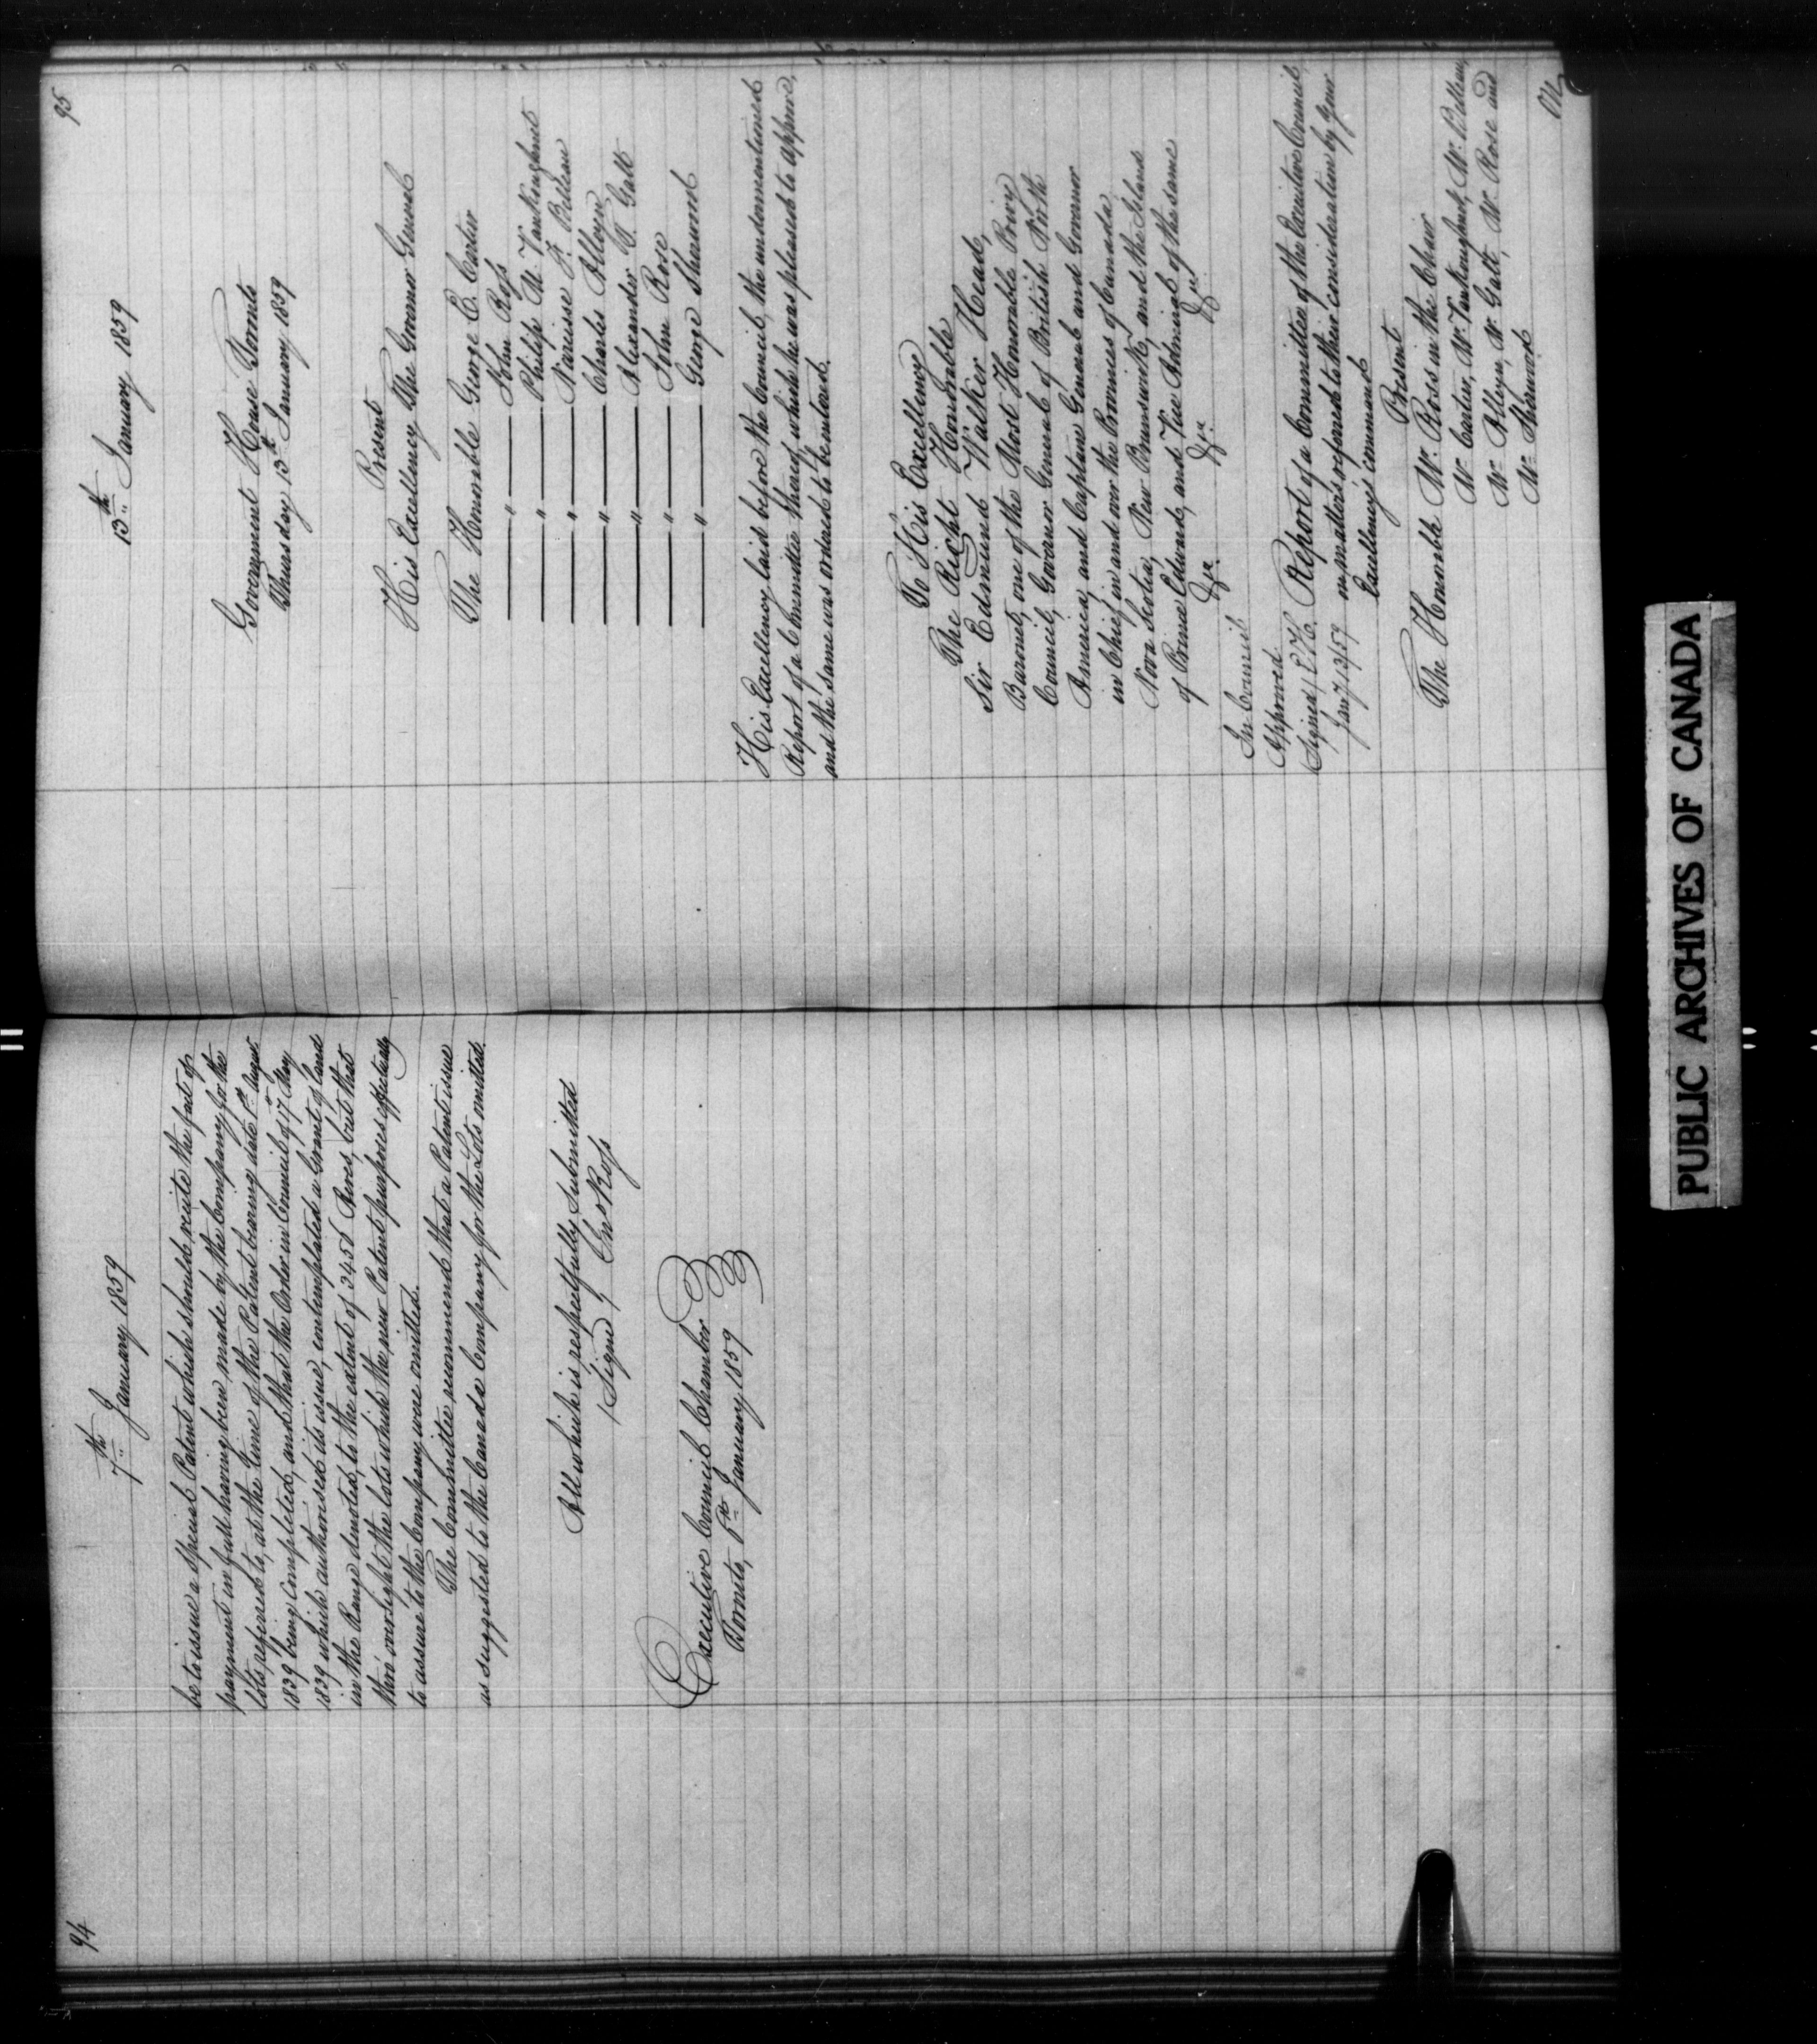 94
7th January 1859
be to issue a special Patent which should recite the fact of
payment in full having been made by the Company for the
lots referred to, at the time of the Patent bearing date 1st August
1839 being completed, and that the Order in Council of 17th May
1839 which authorised its issue, contemplated a Grant of land
in the Range denoted, to the extent of Acres, but that
thro' oversight the lots which the new Patent purposes effectually
to assure to the Company were omitted.
The Committee recommend that a Patent issue
as suggested to the Canada Company for the Lots omitted.
All which is respectfully submitted
(Signed) Jno Ross
Executive Council Chamber
Toronto, January 1859
95
13th January 1859
Government House Toronto
Thursday 13th January 1859
Present
His Excellency The Governor General
The Honorable George E. Cartier
" John Ross
" Philip M. Vankoughnet
" Narcisse F. Belleau
" Charles Alleyn
" Alexander T. Galt
" John Rose
" George Sherwood
His Excellency laid before the Council, the undermentioned
Report of a Committee thereof which he was pleased to approve,
and the same was ordered to be entered.
To His Excellency
The Right Honorable
Sir Edmund Walker Head,
Baronet, one of the Most Honorable Privy
Council, Governor General of British North
America, and Captain General and Governor
in Chief, in and over the Provinces of Canada,
Nova Scotia, New Brunswick, and the Island
of Prince Edward, and Vice Admiral of the same
&c. &c. &c.
In Council
Approved
(Signed) E.H.
Jany 13/59
Report of a Committee of the Executive Council,
on matters referred to their consideration by Your
Excellency's command
Present
The Honorable Mr. Ross in the Chair
Mr. Cartier, Mr. Vankoughnet, Mr. Belleau,
Mr. Alleyn, Mr. Galt, Mr. Rose and
Mr. Sherwood
On
PUBLIC ARCHIVES OF CANADA